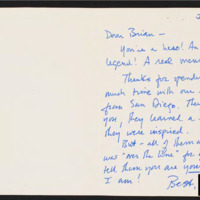 Dear Brian —
You're a hero! An
legend! A real men
Thanks for spendi
much time with our
from San Diego. Tha
you, they learned a
they were inspired.
But — all of them a
was "over the line" for
tell them you are you
I am!
Best,